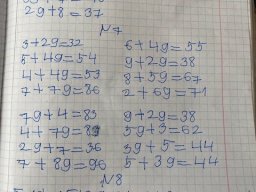 29+8=37
№7
3+29=32 6+49=55
5+49=54 9+29=38
4+49=53 8+59=67
7+79=86 2+69=71
79+4=83 9+29=38
4+79=83 59+3=62
29+7=36 39+5=44
7+89=96 5+39=44
№8